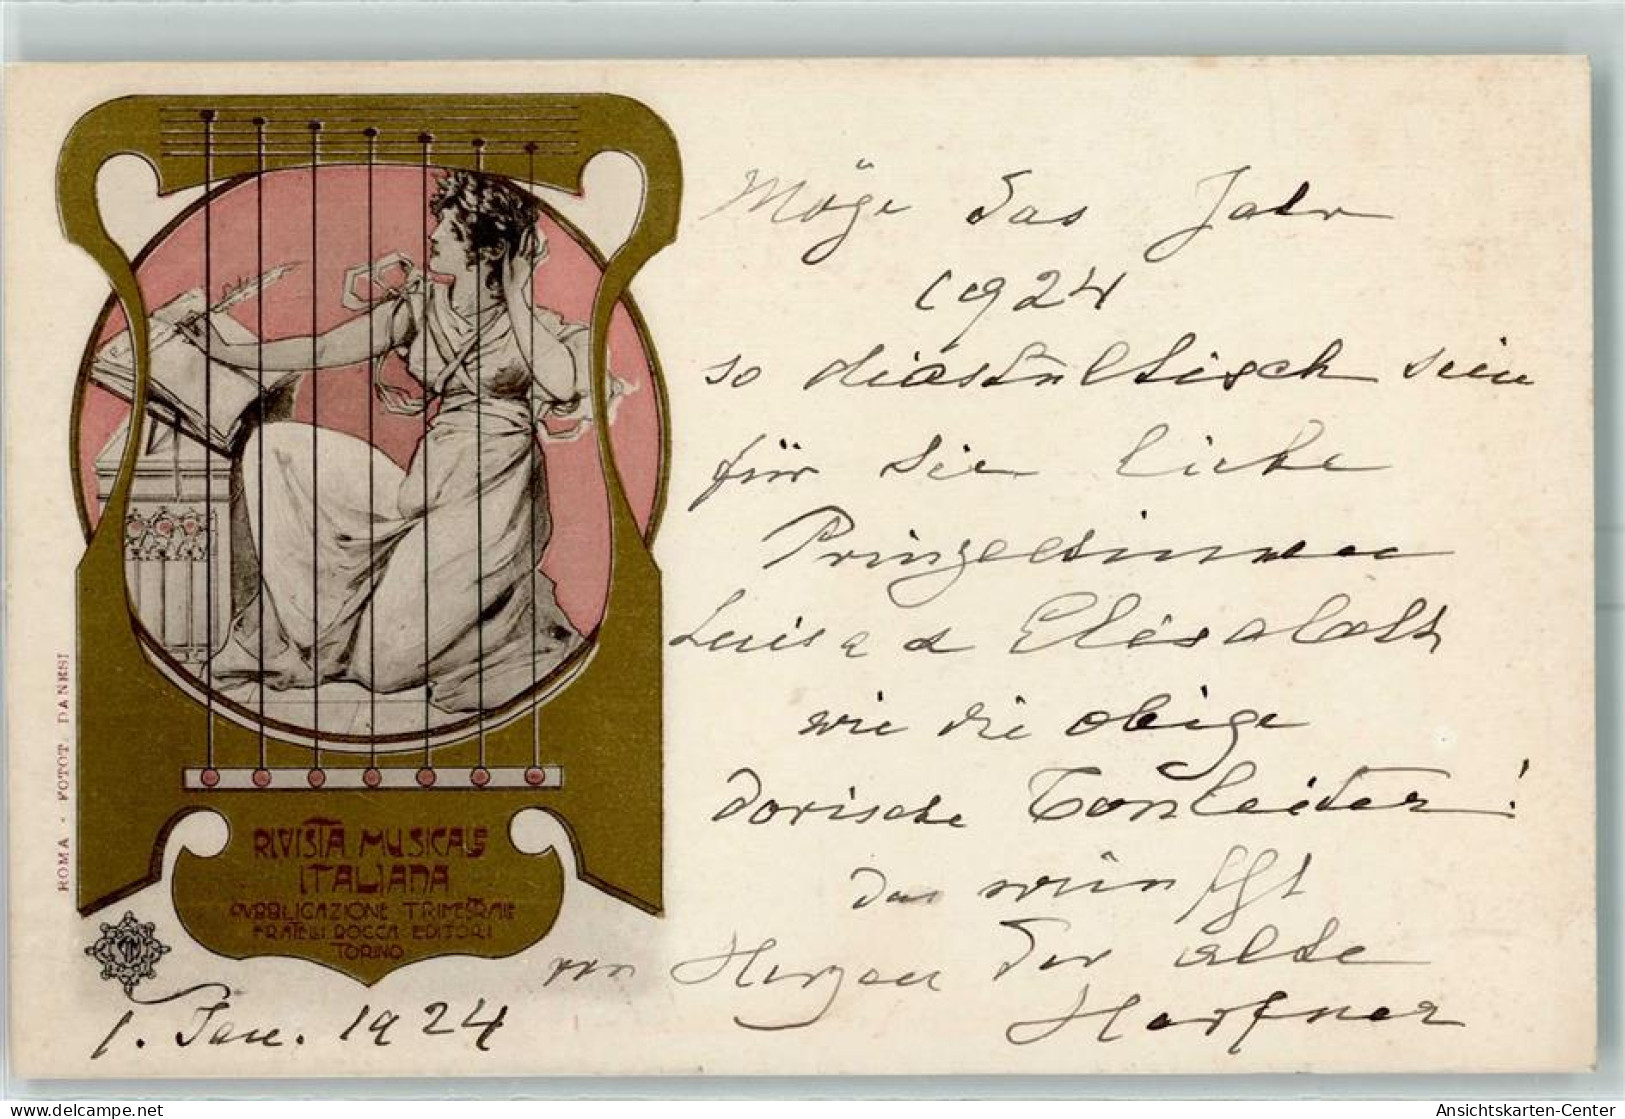 Möge das Jahr
1924
so diastaltisch sein
für die liebe
Prinzessinnen
Luisa & Elisabeth
wie die obige
dorische Tonleiter!
Das wünscht
von Herzen der alte
Harfner
1. Jan. 1924
RIVISTA MUSICALE
ITALIANA
PUBBLICAZIONE TRIMESTRALE
FRATELLI BOCCA EDITORI
TORINO
ROMA - FOTOT. DANESI
Ansichtskarten-Center